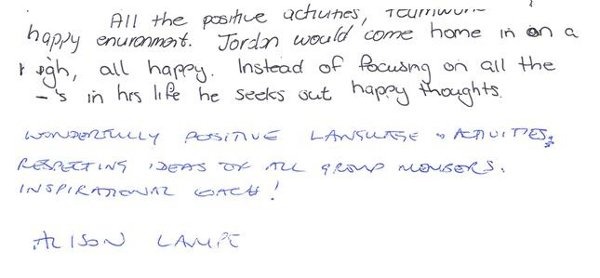 All the positive activities, Teamwork
happy environment. Jordan would come home in on a
high, all happy. Instead of focusing on all the
-'s in his life he seeks out happy thoughts.
WONDERFULLY POSITIVE LANGUAGE & ACTIVITIES,
RESPECTING IDEAS OF ALL GROUP MEMBERS.
INSPIRATIONAL COACH!
ALISON LAMPE